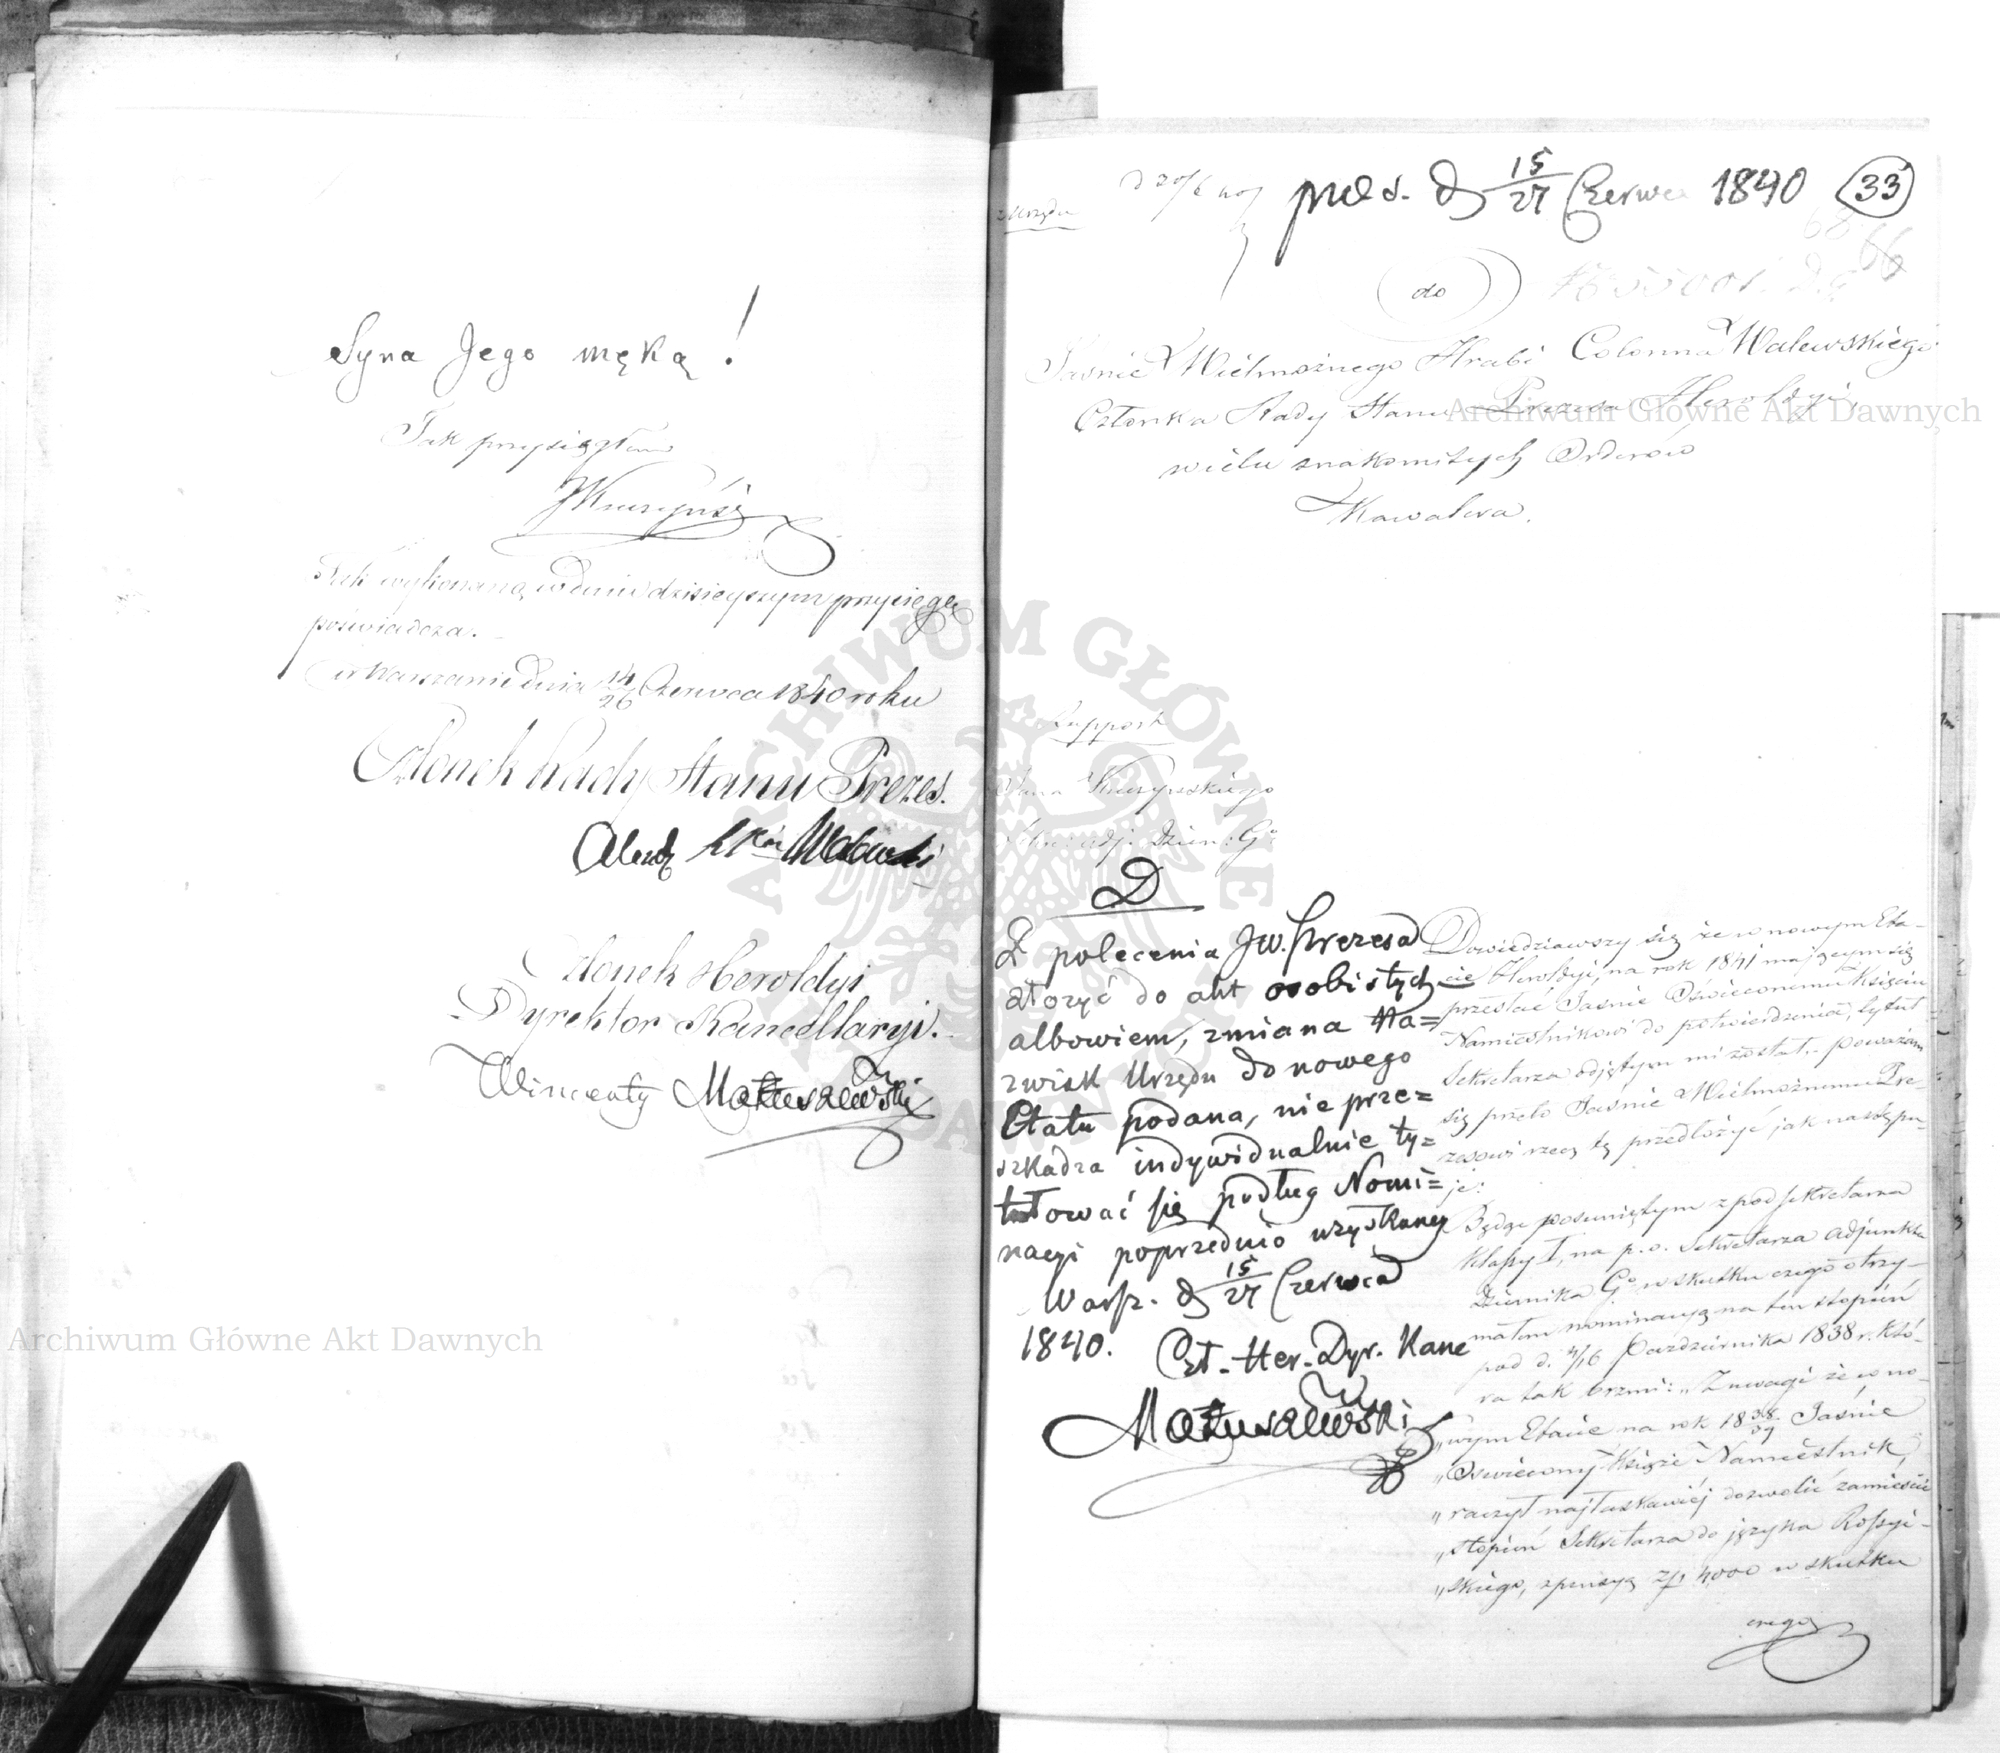 Syna Jego męką!
Tak przysiągłem
Tak wykonaną w dniu dzisieyszym przysięgę
poświadcza.
w Warszawie dnia 14/26 Czerwca 1840 roku
Członek Rady Stanu Prezes.
Walewski
Członek Heroldyi
Dyrektor Kancellaryi.
Wincenty Matuszewski
pres. d 15/27 Czerwca 1840 33
66
do
Jaśnie Wielmożnego Hrabi Colonna Walewskiego
Członka Rady Stanu Prezesa Heroldyi,
wielu znakomitych Orderów
Kawalera.
Rapport
Dzien: Go
D
Z polecenia JW. Prezesa
złożyć do akt osobistych
albowiem, zmiana Na=
zwisk Urzędu do nowego
Etatu podana, nie prze=
szkadza indywidualnie ty=
tułować się podług Nomi=
nacyi poprzednio uzyskaney
Warsz. d 15/27 Czerwca
1840.
Czł. Her. Dyr. Kanc
Matuszewski
Dowiedziawszy się że w nowym Eta-
cie Heroldyi, na rok 1841 mającym się
przesłać Jaśnie Oświeconemu Księciu
Namiestnikowi do potwierdzenia, tytuł
Sekretarza odjętym mi został.- poważam
się przeto Jaśnie Wielmożnemu Pre-
zesowi rzecz tę przedłożyć jak następu-
je:
Będąc posuniętym z podsekretarza
klassy I, na p. o. Sekretarza adjunkta
Dziennika Go w skutku czego otrzy-
małem nominacyą na ten stopień
pod d. 4/16 Października 1838 r. któ-
ra tak brzmi: „Z uwagi że w no-
„wym Etacie na rok 1838/39 Jaśnie
„Oświecony Książe Namiestnik,
„raczył najłaskawiéj dozwolić zamieścić
„stopień Sekretarza do języka Rossyi-
„skiego, z pensyą złp 4,000 w skutku
czego
Archiwum Główne Akt Dawnych
Archiwum Główne Akt Dawnych
ARCHIWUM GŁÓWNE AKT DAWNYCH